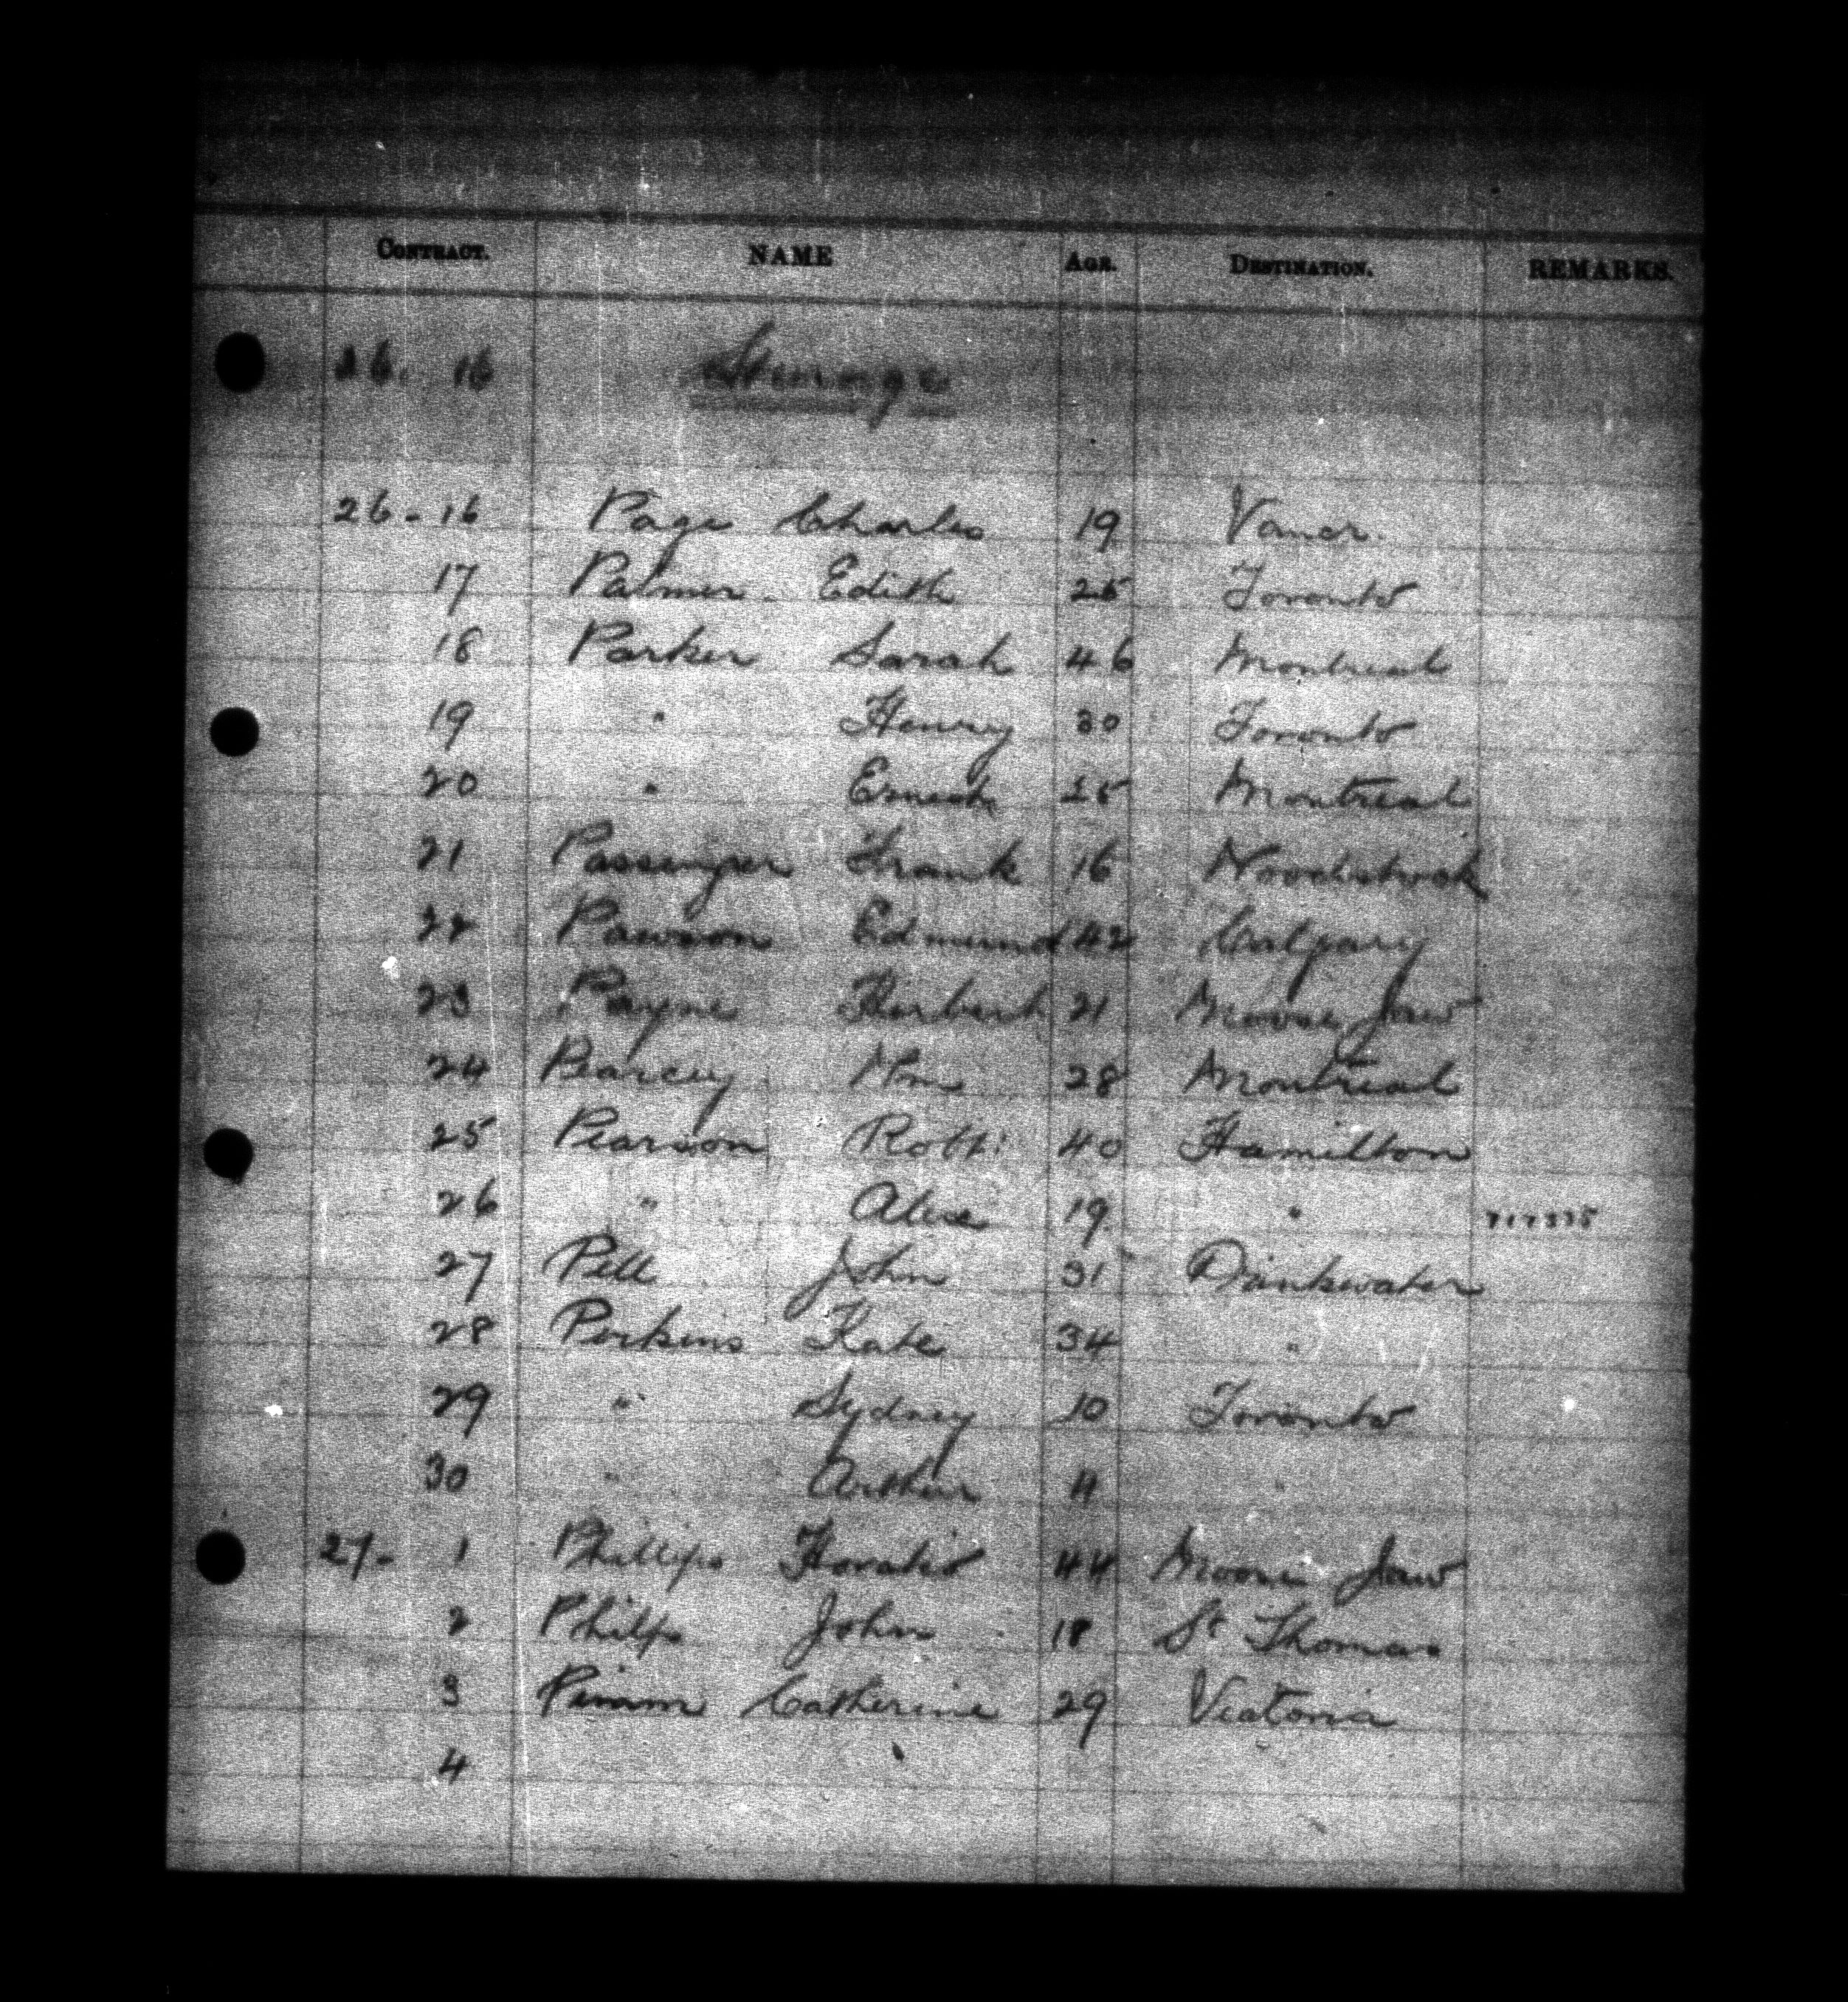 CONTRACT. NAME AGE. DESTINATION. REMARKS.
26. 16 Steerage
26-16 Page Charles 19 Vancr.
17 Palmer - Edith 25 Toronto
18 Parker Sarah 46 Montreal
19 " Henry 30 Toronto
20 " Ernest 25 Montreal
21 Passenger Frank 16 Woodstock
22 Pawson Edmund 42 Calgary
23 Payne Herbert 21 Moose Jaw
24 Pearcey Wm 28 Montreal
25 Pearson Robt. 40 Hamilton
26 " Alex 19 "
27 Pell John 31 Drinkwater
28 Perkins Kate 34 "
29 " Sydney 10 Toronto
30 " Arthur "
27- 1 Phillips Horatio 44 Moose Jaw
2 Philp John 18 St Thomas
3 Pimm Catherine 29 Victoria
4